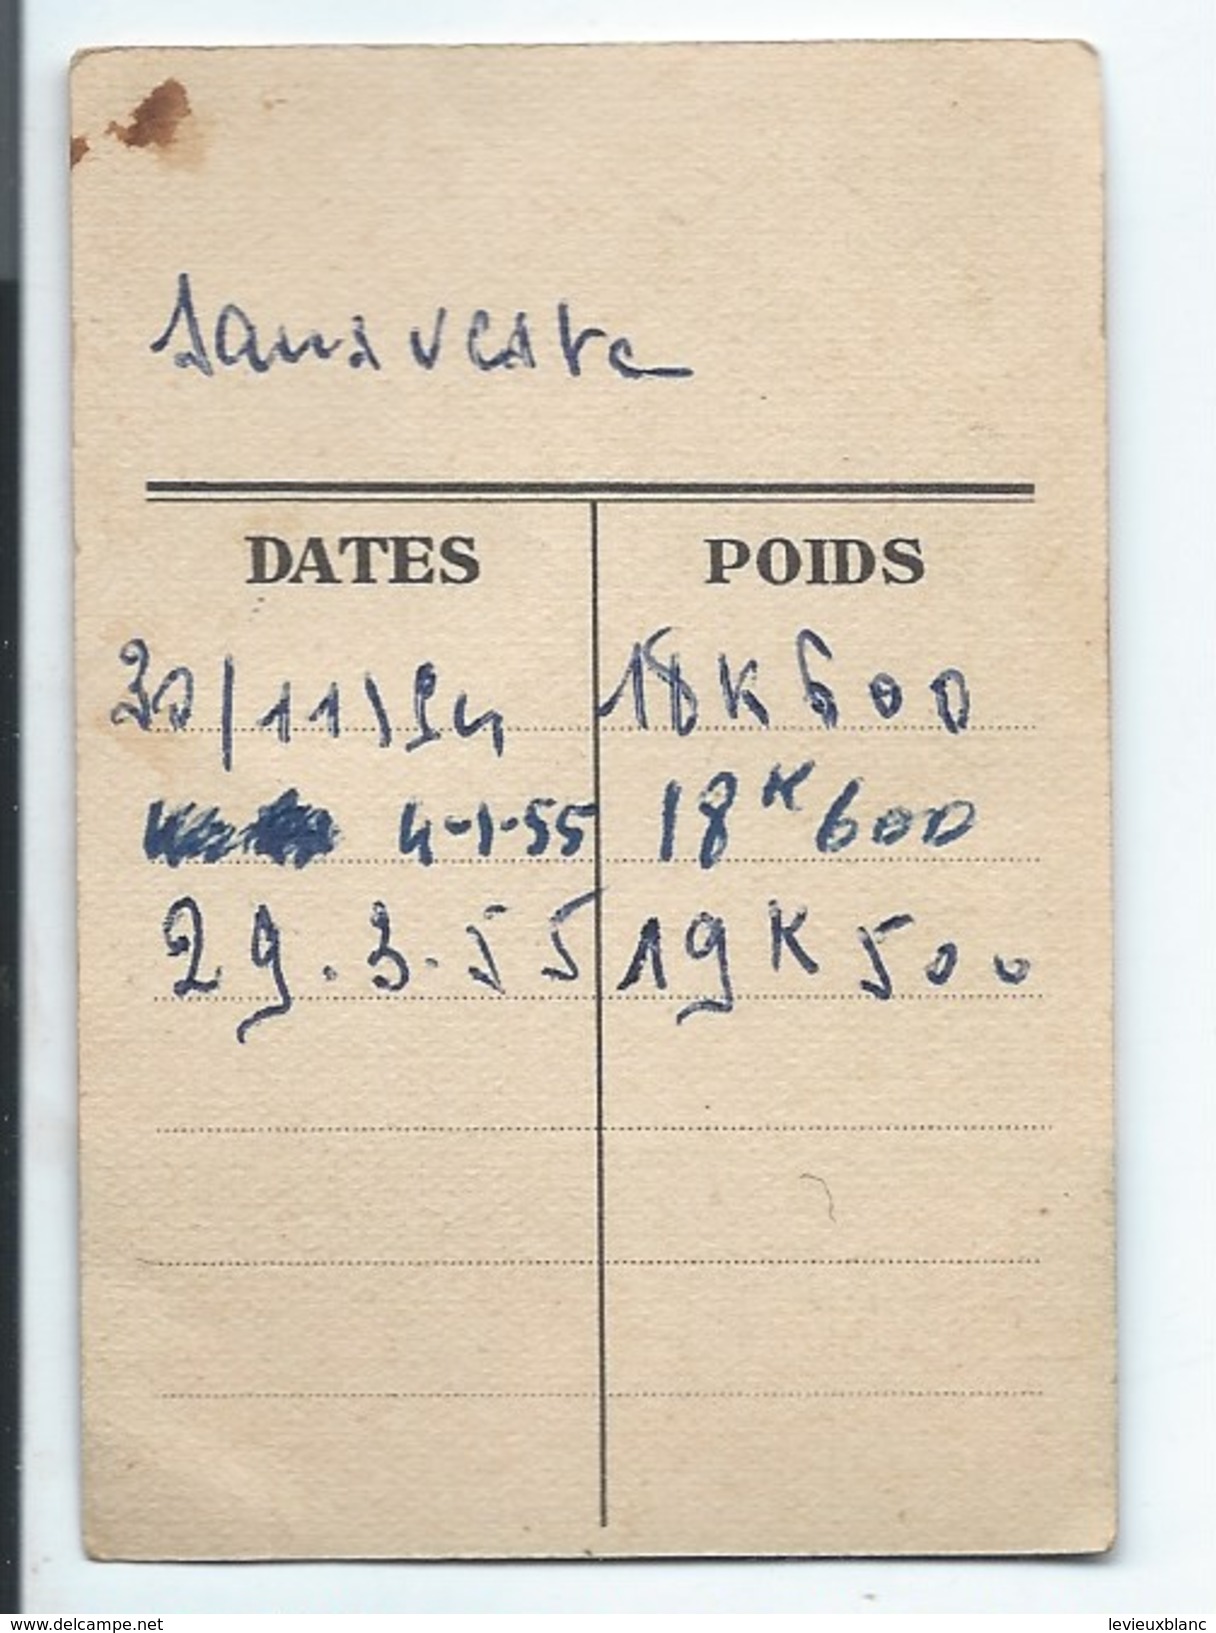 sans veste
DATES POIDS
30/11/54 18K600
4-1-55 18K600
29.3.55 19K500
delcampe.net
levieuxblanc